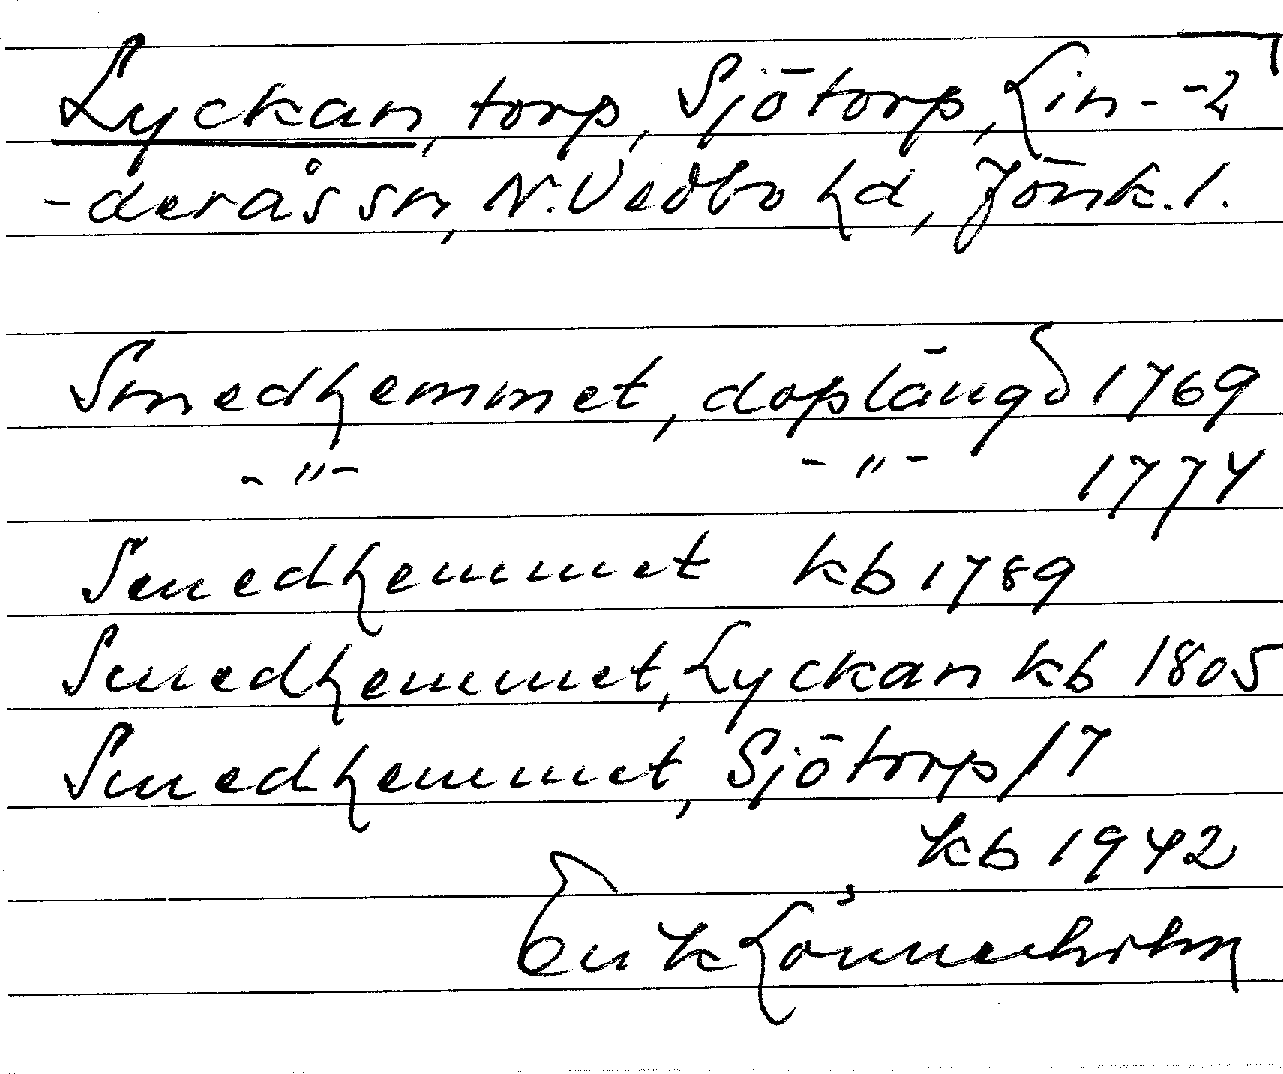 Lyckan, torp, Sjötorp, Lin- -2
-derås sn, N. Vedbo hd, Jönk. l.
Smedhemmet, doplängd 1769
-"- -"- 1774
Smedhemmet kb 1789
Smedhemmet, Lyckan kb 1805
Smedhemmet, Sjötorp 17
kb 1942
Erik Lönnerholm